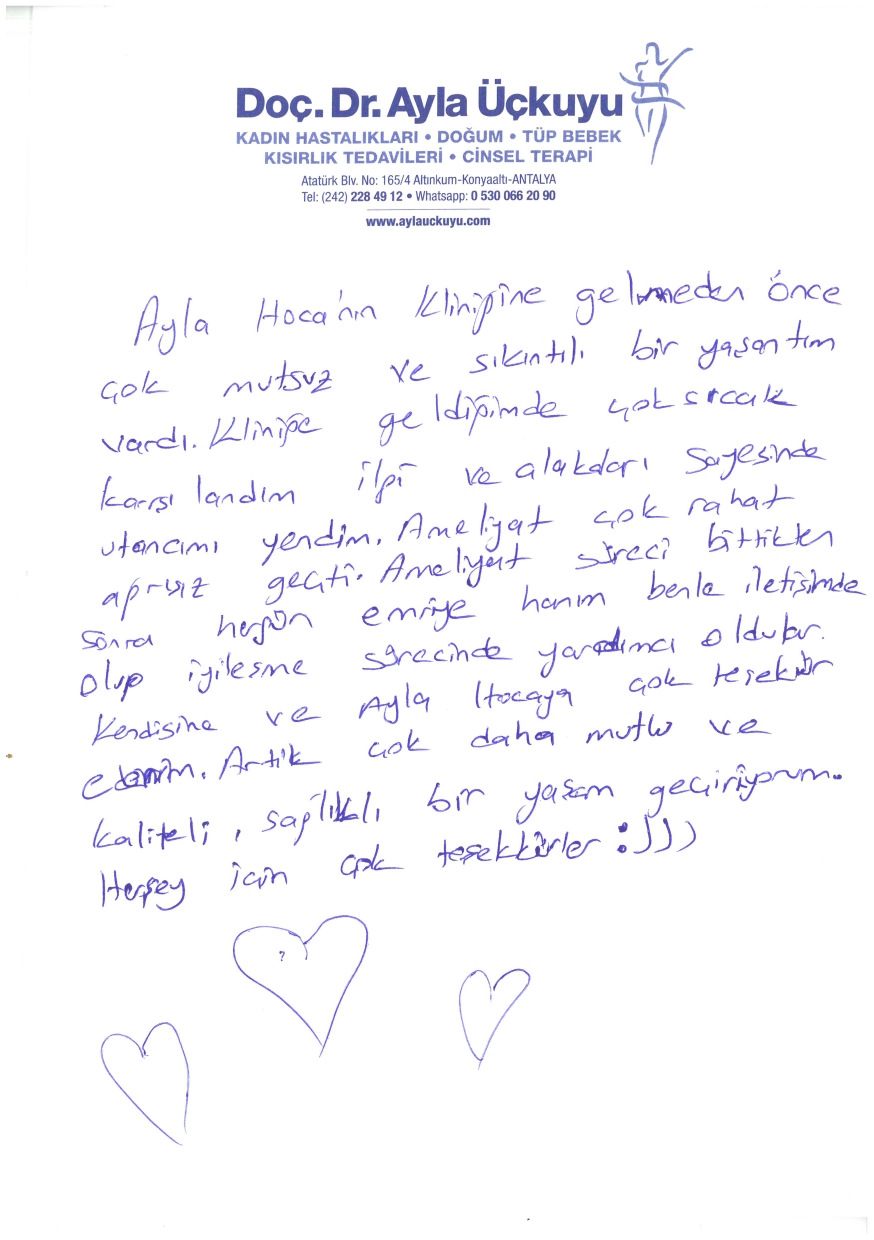 Doç. Dr. Ayla Üçkuyu
KADIN HASTALIKLARI • DOĞUM • TÜP BEBEK
KISIRLIK TEDAVİLERİ • CİNSEL TERAPİ
Atatürk Blv. No: 165/4 Altınkum-Konyaaltı-ANTALYA
Tel: (242) 228 49 12 • Whatsapp: 0 530 066 20 90
www.aylauckuyu.com
Ayla Hoca'nın kliniğine gelmeden önce
çok mutsuz ve sıkıntılı bir yaşantım
vardı. Kliniğe geldiğimde çok sıcak
karşılandım ilgi ve alakaları sayesinde
utancımı yendim. Ameliyat çok rahat
ağrısız geçti. Ameliyat süreci bittikten
sonra hergün emriye hanım benle iletişimde
olup iyileşme sürecinde yardımcı oldular.
Kendisine ve Ayla Hocaya çok teşekür
ederim. Artık çok daha mutlu ve
kaliteli, sağlıklı bir yaşam geçiriyorum.
Herşey için çok teşekkürler :)))
?